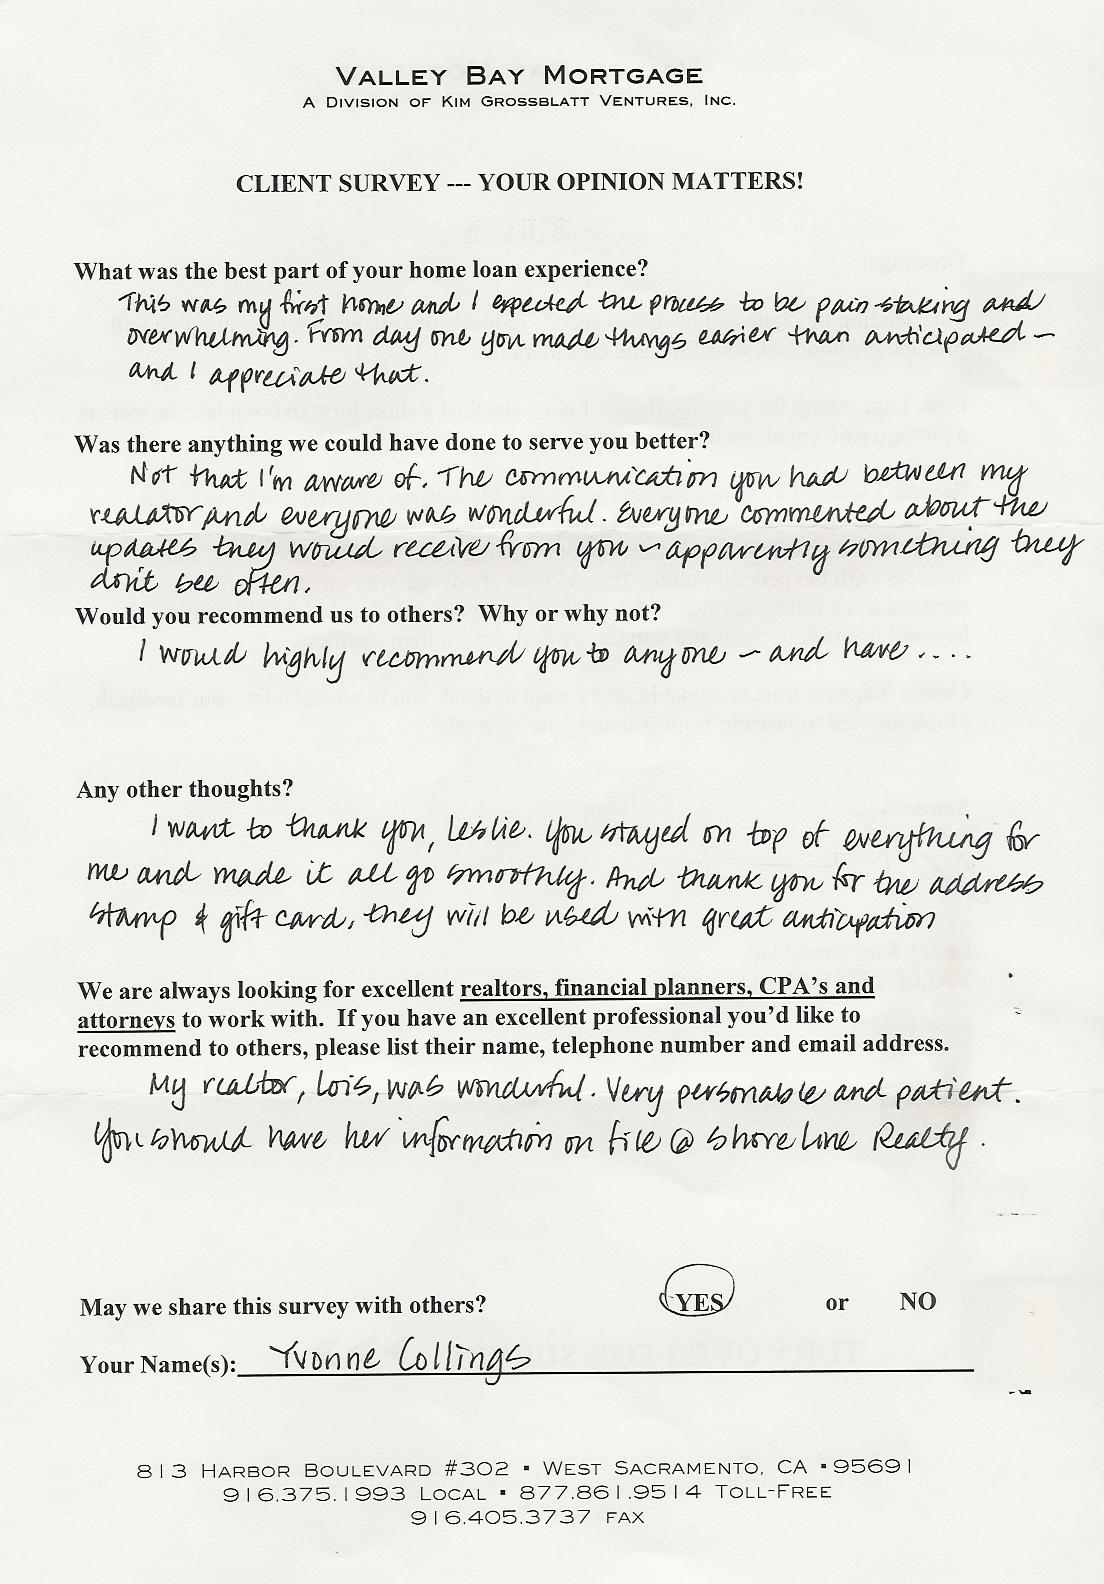 VALLEY BAY MORTGAGE
A DIVISION OF KIM GROSSBLATT VENTURES, INC.
CLIENT SURVEY --- YOUR OPINION MATTERS!
What was the best part of your home loan experience?
This was my first home and I expected the process to be pain staking and
overwhelming. From day one you made things easier than anticipated -
and I appreciate that.
Was there anything we could have done to serve you better?
Not that I'm aware of. The communication you had between my
realator and everyone was wonderful. Everyone commented about the
updates they would receive from you - apparently something they
don't see often.
Would you recommend us to others? Why or why not?
I would highly recommend you to anyone - and have ....
Any other thoughts?
I want to thank you, Leslie. You stayed on top of everything for
me and made it all go smoothly. And thank you for the address
stamp & gift card, they will be used with great anticipation
We are always looking for excellent realtors, financial planners, CPA's and
attorneys to work with. If you have an excellent professional you'd like to
recommend to others, please list their name, telephone number and email address.
My realtor, Lois, was wonderful. Very personable and patient.
You should have her information on file @ Shore Line Realty.
May we share this survey with others? YES or NO
Your Name(s): Yvonne Collings
813 HARBOR BOULEVARD #302 ▪ WEST SACRAMENTO, CA ▪ 95691
916.375.1993 LOCAL ▪ 877.861.9514 TOLL-FREE
916.405.3737 FAX